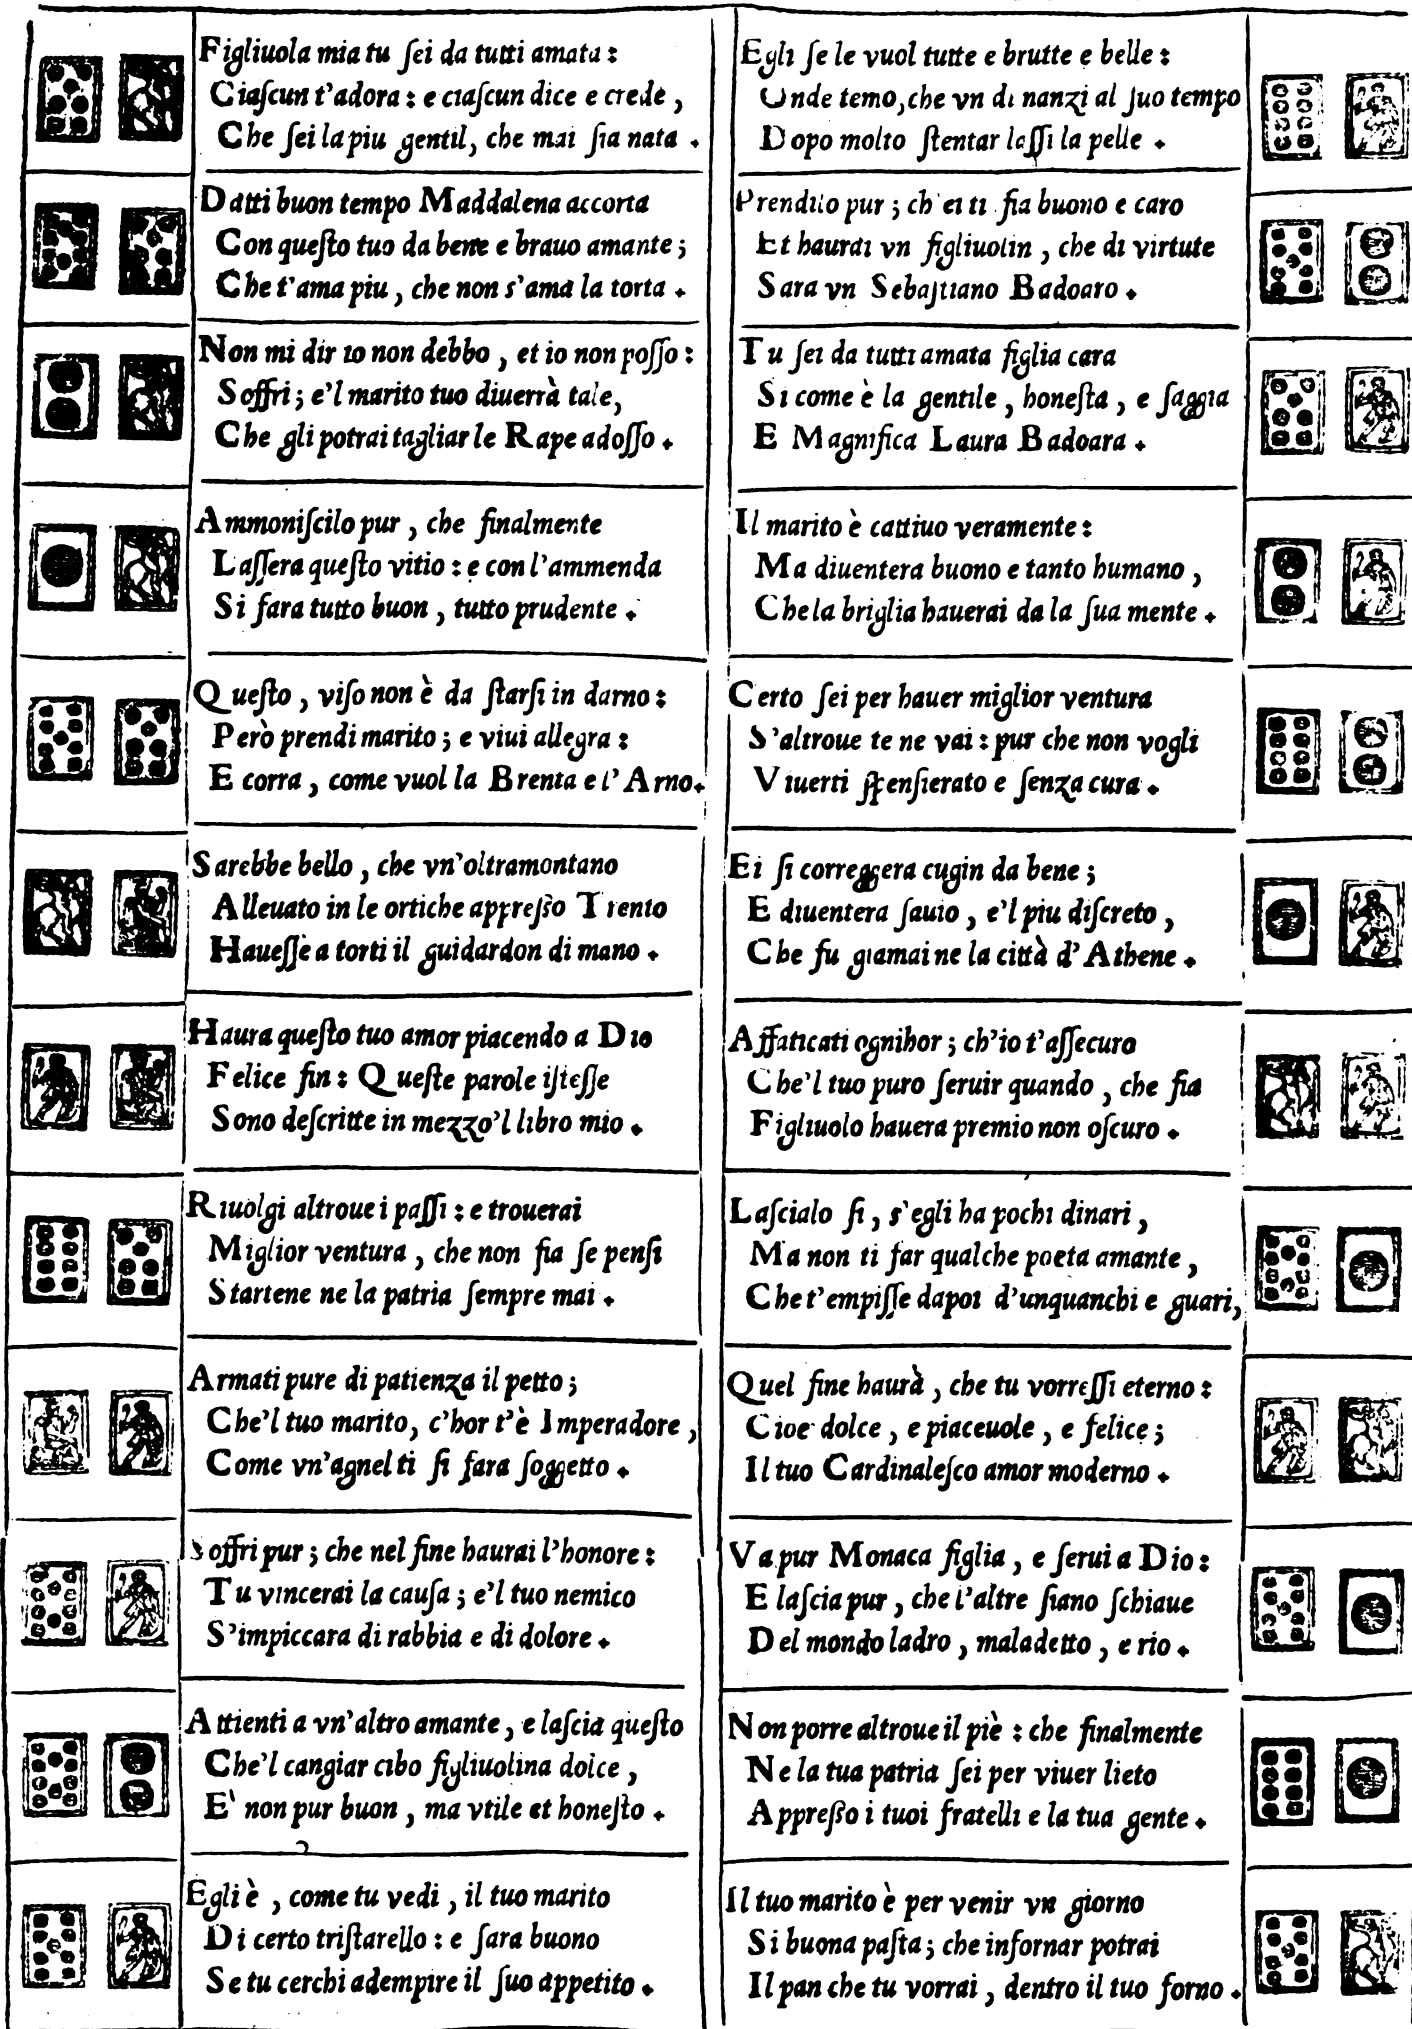 Figliuola mia tu ſei da tutti amata :
Ciaſcun t'adora : e ciaſcun dice e crede ,
Che ſei la piu gentil , che mai ſia nata .
Datti buon tempo Maddalena accorta
Con queſto tuo da bene e brauo amante ;
Che t'ama piu , che non s'ama la torta .
Non mi dir io non debbo , et io non poſſo :
Soffri ; e'l marito tuo diuerrà tale ,
Che gli potrai tagliar le Rape adoſſo .
Ammoniſcilo pur , che finalmente
Laſſera queſto vitio : e con l'ammenda
Si fara tutto buon , tutto prudente .
Queſto , viſo non è da ſtarſi in darno :
Però prendi marito ; e viui allegra :
E corra , come vuol la Brenta e l'Arno .
Sarebbe bello , che vn'oltramontano
Alleuato in le ortiche appreſſo Trento
Haueſſe a torti il guidardon di mano .
Haura queſto tuo amor piacendo a Dio
Felice fin : Queſte parole iſteſſe
Sono deſcritte in mezzo'l libro mio .
Riuolgi altroue i paſſi : e trouerai
Miglior ventura , che non fia ſe penſi
Startene ne la patria ſempre mai .
Armati pure di patienza il petto ;
Che'l tuo marito , c'hor t'è Imperadore ,
Come vn'agnel ti ſi fara ſoggetto .
Soffri pur ; che nel fine haurai l'honore :
Tu vincerai la cauſa ; e'l tuo nemico
S'impiccara di rabbia e di dolore .
Attienti a vn'altro amante , e laſcia queſto
Che'l cangiar cibo figliuolina dolce ,
E' non pur buon , ma vtile et honeſto .
Egli è , come tu vedi , il tuo marito
Di certo triſtarello : e ſara buono
Se tu cerchi adempire il ſuo appetito .
Egli ſe le vuol tutte e brutte e belle :
Onde temo , che vn di nanzi al ſuo tempo
Dopo molto ſtentar laſſi la pelle .
Prendilo pur ; ch'ei ti fia buono e caro
Et haurai vn figliuolin , che di virtute
Sara vn Sebaſtiano Badoaro .
Tu ſei da tutti amata figlia cara
Si come è la gentile , honeſta , e ſaggia
E Magnifica Laura Badoara .
Il marito è cattiuo veramente :
Ma diuentera buono e tanto humano ,
Che la briglia hauerai da la ſua mente .
Certo ſei per hauer miglior ventura
S'altroue te ne vai : pur che non vogli
Viuerti ſpenſierato e ſenza cura .
Ei ſi correggera cugin da bene ;
E diuentera ſauio , e'l piu diſcreto ,
Che fu giamai ne la città d'Athene .
Affaticati ognihor ; ch'io t'aſſecuro
Che'l tuo puro ſeruir quando , che ſia
Figliuolo hauera premio non oſcuro .
Laſcialo ſi , s'egli ha pochi dinari ,
Ma non ti far qualche poeta amante ,
Che t'empiſſe dapoi d'unquanchi e guari ,
Quel fine haurà , che tu vorreſſi eterno :
Cioe dolce , e piaceuole , e felice ;
Il tuo Cardinaleſco amor moderno .
Va pur Monaca figlia , e ſerui a Dio :
E laſcia pur , che l'altre ſiano ſchiaue
Del mondo ladro , maladetto , e rio .
Non porre altroue il piè : che finalmente
Ne la tua patria ſei per viuer lieto
Appreſſo i tuoi fratelli e la tua gente .
Il tuo marito è per venir vn giorno
Si buona paſta ; che infornar potrai
Il pan che tu vorrai , dentro il tuo forno .